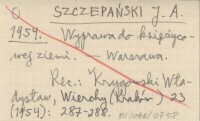 O SZCZEPAŃSKI J. A.
1954. Wyprawa do księżyco-
wej ziemi. — Warszawa.
Rec.: Krygowski Wła-
dysław, Wierchy (Kraków) 23
(1954): 287-288.